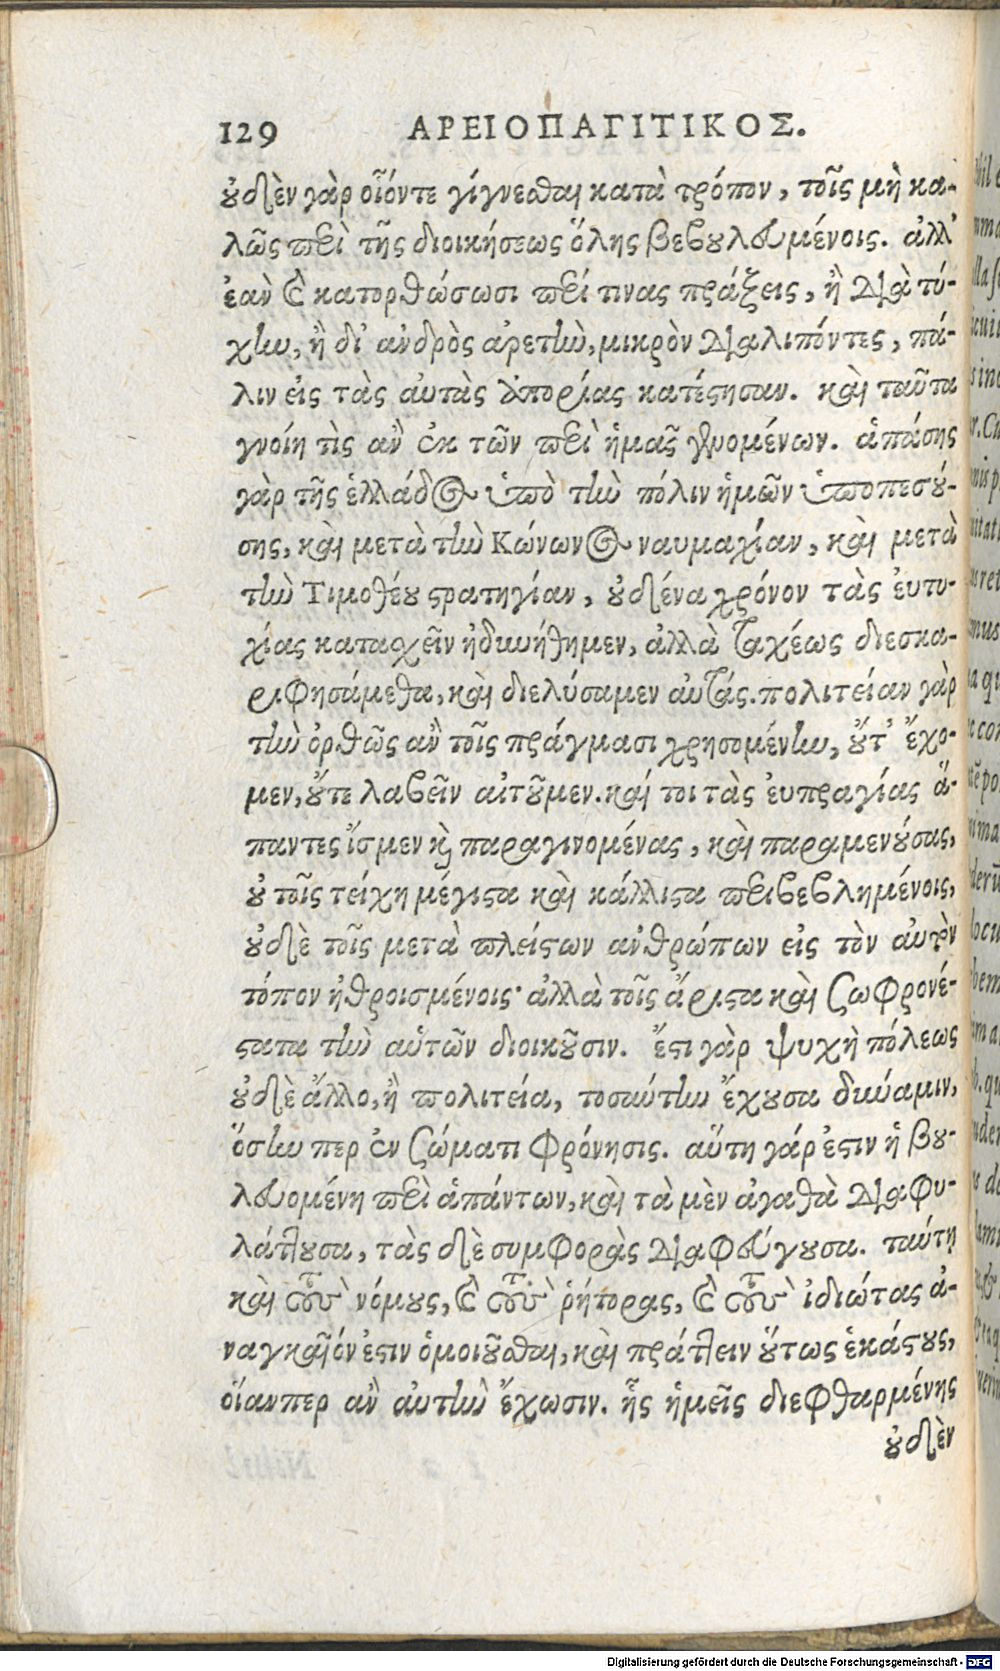 129 ΑΡΕΙΟΠΑΓΙΤΙΚΟΣ.
οὐδὲν γὰρ οἷόντε γίγνεσθαι κατὰ τρόπον, τοῖς μὴ κα-
λῶς περὶ τῆς διοικήσεως ὅλης βεβουλευμένοις. ἀλλ'
ἐὰν καὶ κατορθώσωσι περί τινας πράξεις, ἢ διὰ τύ-
χην, ἢ δι' ἀνδρὸς ἀρετὴν, μικρὸν διαλιπόντες, πά-
λιν εἰς τὰς αὐτὰς ἀπορίας κατέστησαν. καὶ ταῦτα
γνοίη τὶς ἂν ἐκ τῶν περὶ ἡμᾶς γενομένων. ἁπάσης
γὰρ τῆς ἑλλάδος ὑπὸ τὴν πόλιν ἡμῶν ὑποπεσού-
σης, καὶ μετὰ τὴν Κόνωνος ναυμαχίαν, καὶ μετὰ
τὴν Τιμοθέου στρατηγίαν, οὐδένα χρόνον τὰς εὐτυ-
χίας κατασχεῖν ἠδυνήθημεν, ἀλλὰ ταχέως διεσκα-
ριφησάμεθα, καὶ διελύσαμεν αὐτάς. πολιτείαν γὰρ
τὴν ὀρθῶς ἂν τοῖς πράγμασι χρησομένην, οὔτ' ἔχο-
μεν, οὔτε λαβεῖν αἰτοῦμεν. καί τοι τὰς εὐπραγίας ἅ-
παντες ἴσμεν καὶ παραγινομένας, καὶ παραμενούσας,
οὐ τοῖς τείχη μέγιστα καὶ κάλλιστα περιβεβλημένοις,
οὐδὲ τοῖς μετὰ πλείστων ἀνθρώπων εἰς τὸν αὐτὸν
τόπον ἠθροισμένοις· ἀλλὰ τοῖς ἄριστα καὶ σωφρονέ-
στατα τὴν αὑτῶν διοικοῦσιν. ἔστι γὰρ ψυχὴ πόλεως
οὐδὲ ἄλλο, ἢ πολιτεία, τοσαύτην ἔχουσα δύναμιν,
ὅσην περ ἐν σώματι φρόνησις. αὕτη γάρ ἐστιν ἡ βου-
λευομένη περὶ ἁπάντων, καὶ τὰ μὲν ἀγαθὰ διαφυ-
λάττουσα, τὰς δὲ συμφορὰς διαφεύγουσα. ταύτῃ
καὶ τοὺς νόμους, καὶ τοὺς ῥήτορας, καὶ τοὺς ἰδιώτας ἀ-
ναγκαῖόν ἐστιν ὁμοιοῦσθαι, καὶ πράττειν οὕτως ἑκάστους,
οἵαν περ ἂν αὐτὴν ἔχωσιν. ἧς ἡμεῖς διεφθαρμένης
οὐδὲν
Digitalisierung gefördert durch die Deutsche Forschungsgemeinschaft - DFG